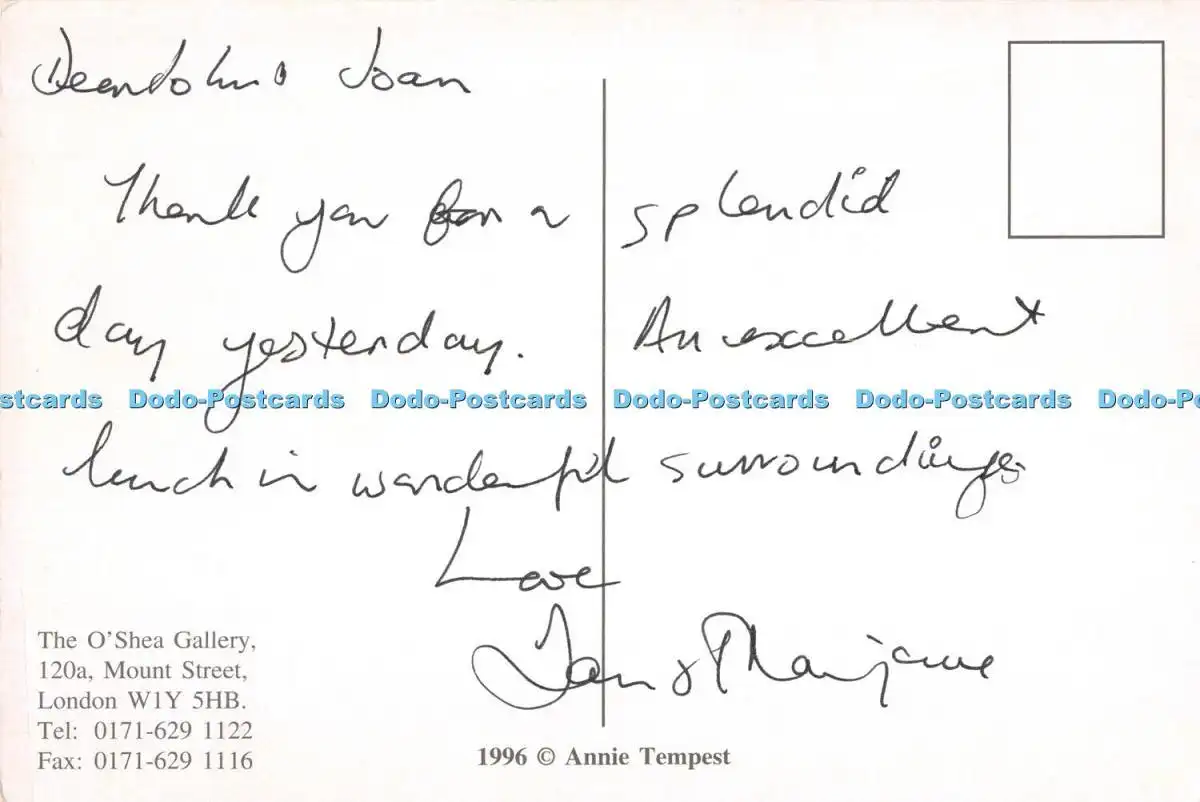 Dear John & Joan
Thank you for a splendid
day yesterday. An excellent
lunch in wonderful surroundings
Love
Ian &
The O'Shea Gallery,
120a, Mount Street,
London W1Y 5HB.
Tel: 0171-629 1122
Fax: 0171-629 1116
1996 © Annie Tempest
stcards Dodo-Postcards Dodo-Postcards Dodo-Postcards Dodo-Postcards Dodo-Po